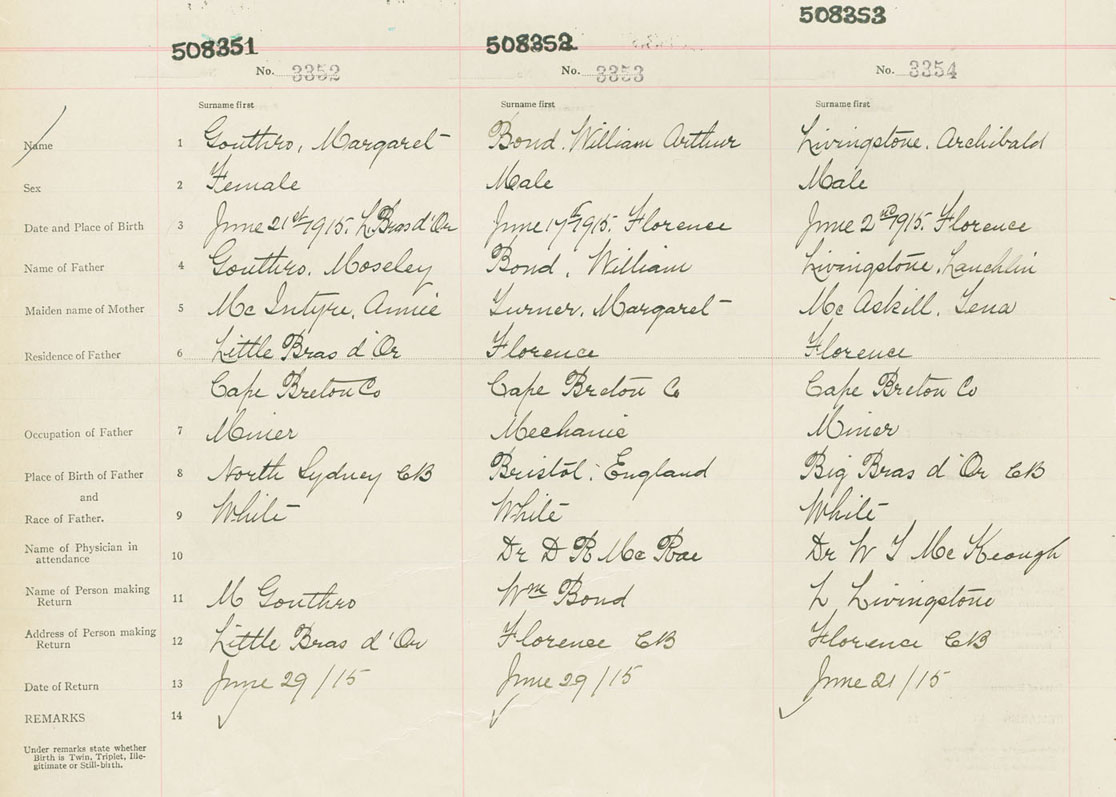 508351 508352 508353
No. 3352 No. 3353 No. 3354
Surname first Surname first Surname first
Name 1 Gouthro, Margaret Bond, William Arthur Livingstone, Archibald
Sex 2 Female Male Male
Date and Place of Birth 3 June 21st 1915. L. Bras d'Or June 17th 1915. Florence June 2nd 1915. Florence
Name of Father 4 Gouthro, Moseley Bond, William Livingstone, Lauchlin
Maiden name of Mother 5 Mc Intyre, Annie Turner, Margaret Mc Askill, Lena
Residence of Father 6 Little Bras d'Or Florence Florence
Cape Breton Co Cape Breton Co Cape Breton Co
Occupation of Father 7 Miner Mechanic Miner
Place of Birth of Father 8 North Sydney CB Bristol, England Big Bras d'Or CB
and
Race of Father. 9 White White White
Name of Physician in
attendance 10 Dr D R Mc Rae Dr W J Mc Keough
Name of Person making
Return 11 M Gouthro Wm Bond L Livingstone
Address of Person making
Return 12 Little Bras d'Or Florence CB Florence CB
Date of Return 13 June 29/15 June 29/15 June 21/15
REMARKS 14
Under remarks state whether
Birth is Twin, Triplet, Ille-
gitimate or Still-birth.